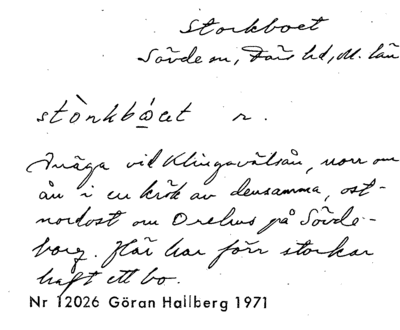 Storkboet
Sövde sn, Färs hd, M. län
stònkbo̲et n.
Aväga vid Klingavälsån, norr om
ån i en krok av densamma, ost-
nordost om Orehus på Sövde-
borg. Här har förr storkar
haft ett bo.
Nr 12026 Göran Hallberg 1971